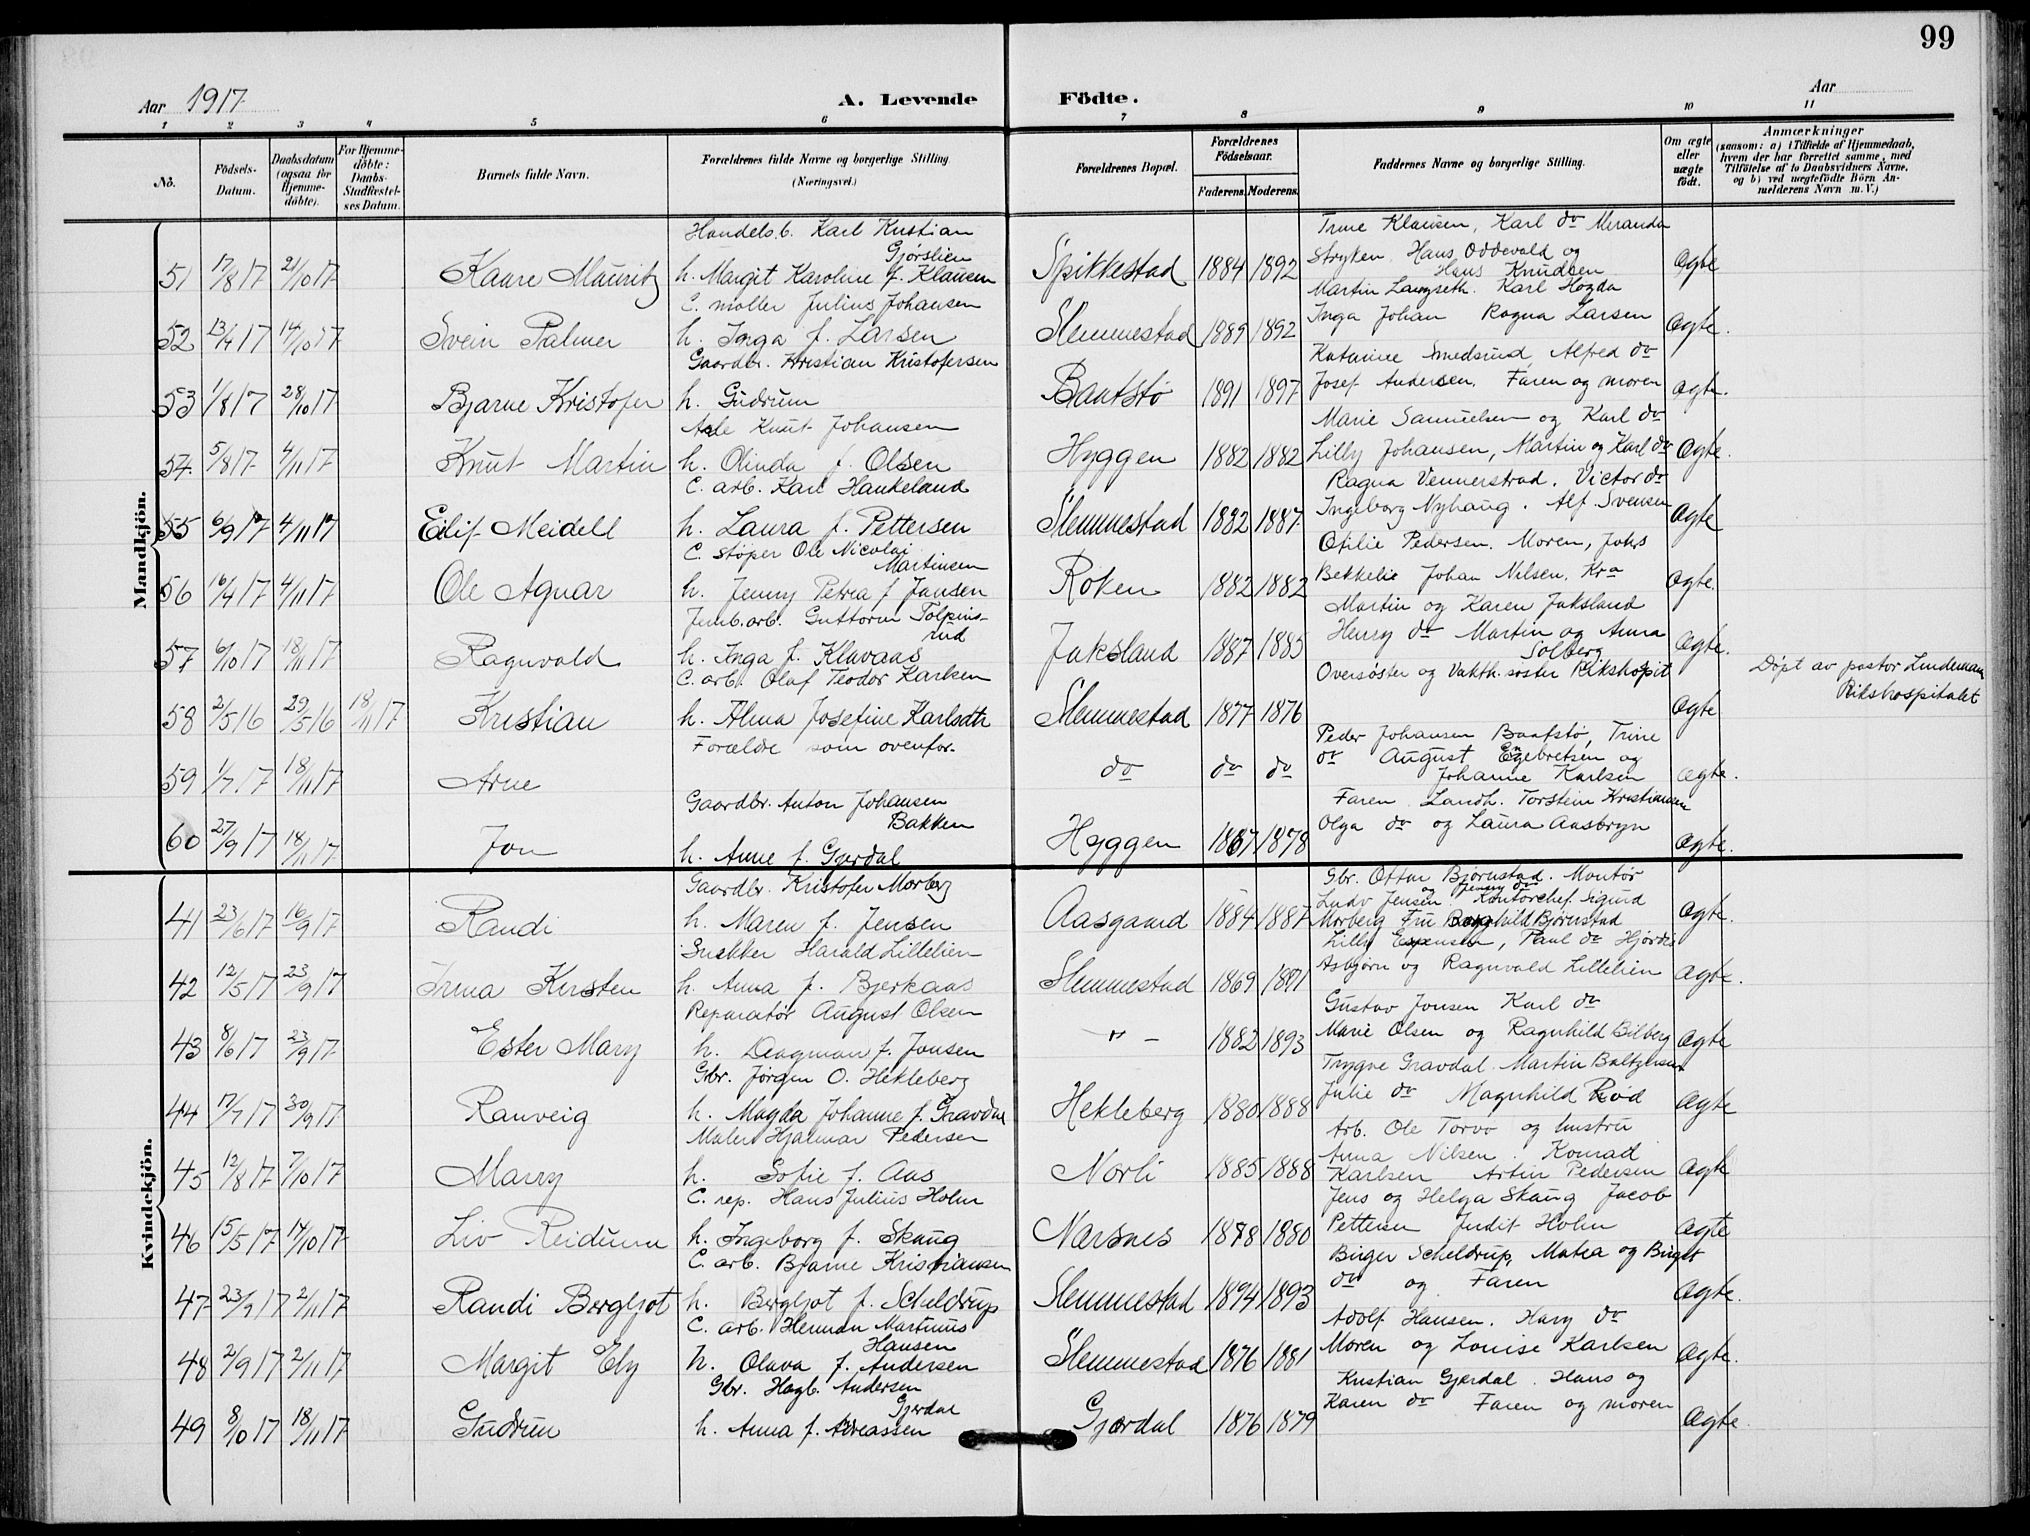 99
Aar 1917
A. Levende Födte.
Aar
1 2 3 4 5 6 7 8 9 10 11
No.
Födsels-Datum.
Daabsdatum (ogsaa for Hjemme-döbte).
For Hjemme-döbte: Daabs-Stadfestel-ses Datum.
Barnets fulde Navn.
Forældrenes fulde Navne og borgerlige Stilling. (Næringsvei.)
Forældrenes Bopæl.
Forældrenes Födselsaar.
Faderens. Moderens.
Faddernes Navne og borgerlige Stilling.
Om ægte eller uægte født.
Anmærkninger
(saasom: a) i Tilfælde af Hjemmedaab, hvem der har forrettet samme, med Tilföielse af to Daabsvidners Navne, og b) ved uægtefödte Börn An-melderens Navn m. V.)
Mandkjön.
Handels.b. Karl Kristian Gjørslien
Trine Klausen, Karl do Miranda
Stryken, Hans Oddevold og Hans Knudsen
51 17/8 17 21/10 17 Kaare Mauritz h. Margit Karoline f. Klausen Spikkestad 1884 1892 Ægte
C. møller Julius Johansen
Martin Langseth. Karl Hogda
52 13/4 17 14/10 17 Svein Palmer h. Inga f. Larsen Slemmestad 1889 1892 Inga Johan Ragna Larsen Ægte.
Gaardbr. Kristian Kristofersen
Katarine Smedsrud, Alfred do
53 1/8 17 28/10 17 Bjarne Kristofer h. Gudrun Baatstø 1891 1897 Josef Andersen. Faren og moren Ægte.
Knut Johansen
Marie Samuelsen og Karl do
54 5/8 17 4/11 17 Knut Martin h. Olinda f. Olsen Hyggen 1882 1882 Lilly Johansen, Martin og Karl do Ægte.
C. arb. Karl Haukeland
Ragna Vennerstrød. Victor do
55 6/9 17 4/11 17 Eilif Meidell h. Laura f. Pettersen Slemmestad 1882 1887 Ingeborg Nyhaug. Alf Svensen Ægte
C. støper Ole Nicolai Martinsen
Otilie Pedersen. Moren, Johs
56 16/4 17 4/11 17 Ole Agnar h. Jenny Petrea f Jansen Røken 1882 1882 Bekkelie Johan Nilsen, Kra Ægte.
Jernb.arb. Guttorm Tolpinsrud
Martin og Karen Jaksland
57 6/10 17 18/11 17 Ragnvald h. Inga f. Klavaas Jaksland 1887 1885 Henry do Martin og Anna Solberg Ægte.
C. arb. Olaf Teodor Karlsen
Oversøster og Vakth. søster Rikshospit
Døpt av pastor Lindeman
Rikshospitalet
58 2/5 16 29/5 16 18/11 17 Kristian h. Alma Josefine Karlsdtr Slemmestad 1877 1876 Ægte
Forældre som ovenfor.
Peder Johansen Baatstø, Trine
59 1/7 17 18/11 17 Arne do do do do August Engebretsen og Johanne Karlsen Ægte.
Gaardbr. Anton Johansen Bakken
Faren Landh. Torstein Kristiansen
60 27/9 17 18/11 17 Jon h. Anne f. Gjerdal Hyggen 1867 1878 Olga do og Laura Aasbryn Ægte.
Kvindekjön.
Gaardbr. Kristofer Morberg
Gbr. Ottar Bjørnstad. Montør
Ludv Jensen og Jenny do Kontorchef Sigurd
41 23/6 17 16/9 17 Randi h. Maren f. Jensen Aasgaard 1884 1887 Morberg Fru Borghild Bjørnstad Ægte.
Snekker Harald Lillelien
Lilly Espensen, Paul do Hjørdis
42 12/5 17 23/9 17 Irma Kirsten h. Anna f. Bjerkaas Slemmestad 1869 1871 Asbjørn og Ragnvald Lillelien Ægte.
Reparatør August Olsen
Gustav Jonsen Karl do
43 8/6 17 23/9 17 Ester Mary h. Dagmar f. Jonsen " - 1882 1893 Marie Olsen og Ragnhild Bilberg Ægte
Gbr. Jørgen O. Hekleberg
Trygve Gravdal. Martin Baltzersen
44 17/7 17 30/9 17 Ranveig h. Magda Johanne f. Gravdal Hekleberg 1880 1888 Julie do Magnhild Rød Ægte
Maler Hjalmar Pedersen
Arb. Ole Torvø og hustru
45 12/8 17 7/10 17 Marry h. Sofie f. Aas Norli 1885 1888 Anna Nilsen. Konrad Karlsen Artur Pedersen Ægte
C. rep. Hans Julius Holm
Jens og Helga Skaug Jacob
46 15/5 17 14/10 17 Liv Reidunn h. Ingeborg f. Skaug Nærsnes 1878 1880 Pettersen Judit Holm Ægte
C. arb. Bjarne Kristiansen
Birger Scheldrup, Matea og Birgit
47 23/9 17 2/11 17 Randi Bergljot h. Bergljot f. Scheldrup Slemmestad 1894 1893 do og Faren Ægte.
C. arb. Herman Martinius Hansen
Adolf Hansen. Kary do
48 2/9 17 2/11 17 Margit Ely h. Olava f. Andersen Slemmestad 1876 1881 Moren og Louise Karlsen Ægte.
Gbr. Hagb. Andersen Gjerdal
Kristian Gjerdal. Hans og
49 8/10 17 18/11 17 Gudrun h. Anna f. Andreassen Gjerdal 1876 1879 Karen do Faren og moren Ægte